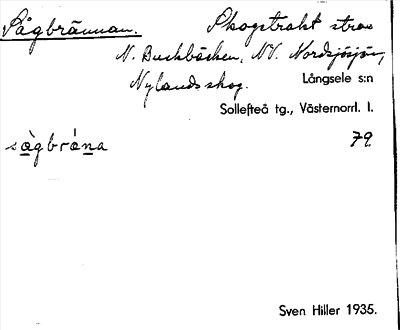 Sågbrännan. Skogstrakt strax
N. Buckbäcken, NV. Nordsjösjön,
Nylandsskog. Långsele s:n
Sollefteå tg., Västernorrl. l.
sågbrána 79.
Sven Hiller 1935.